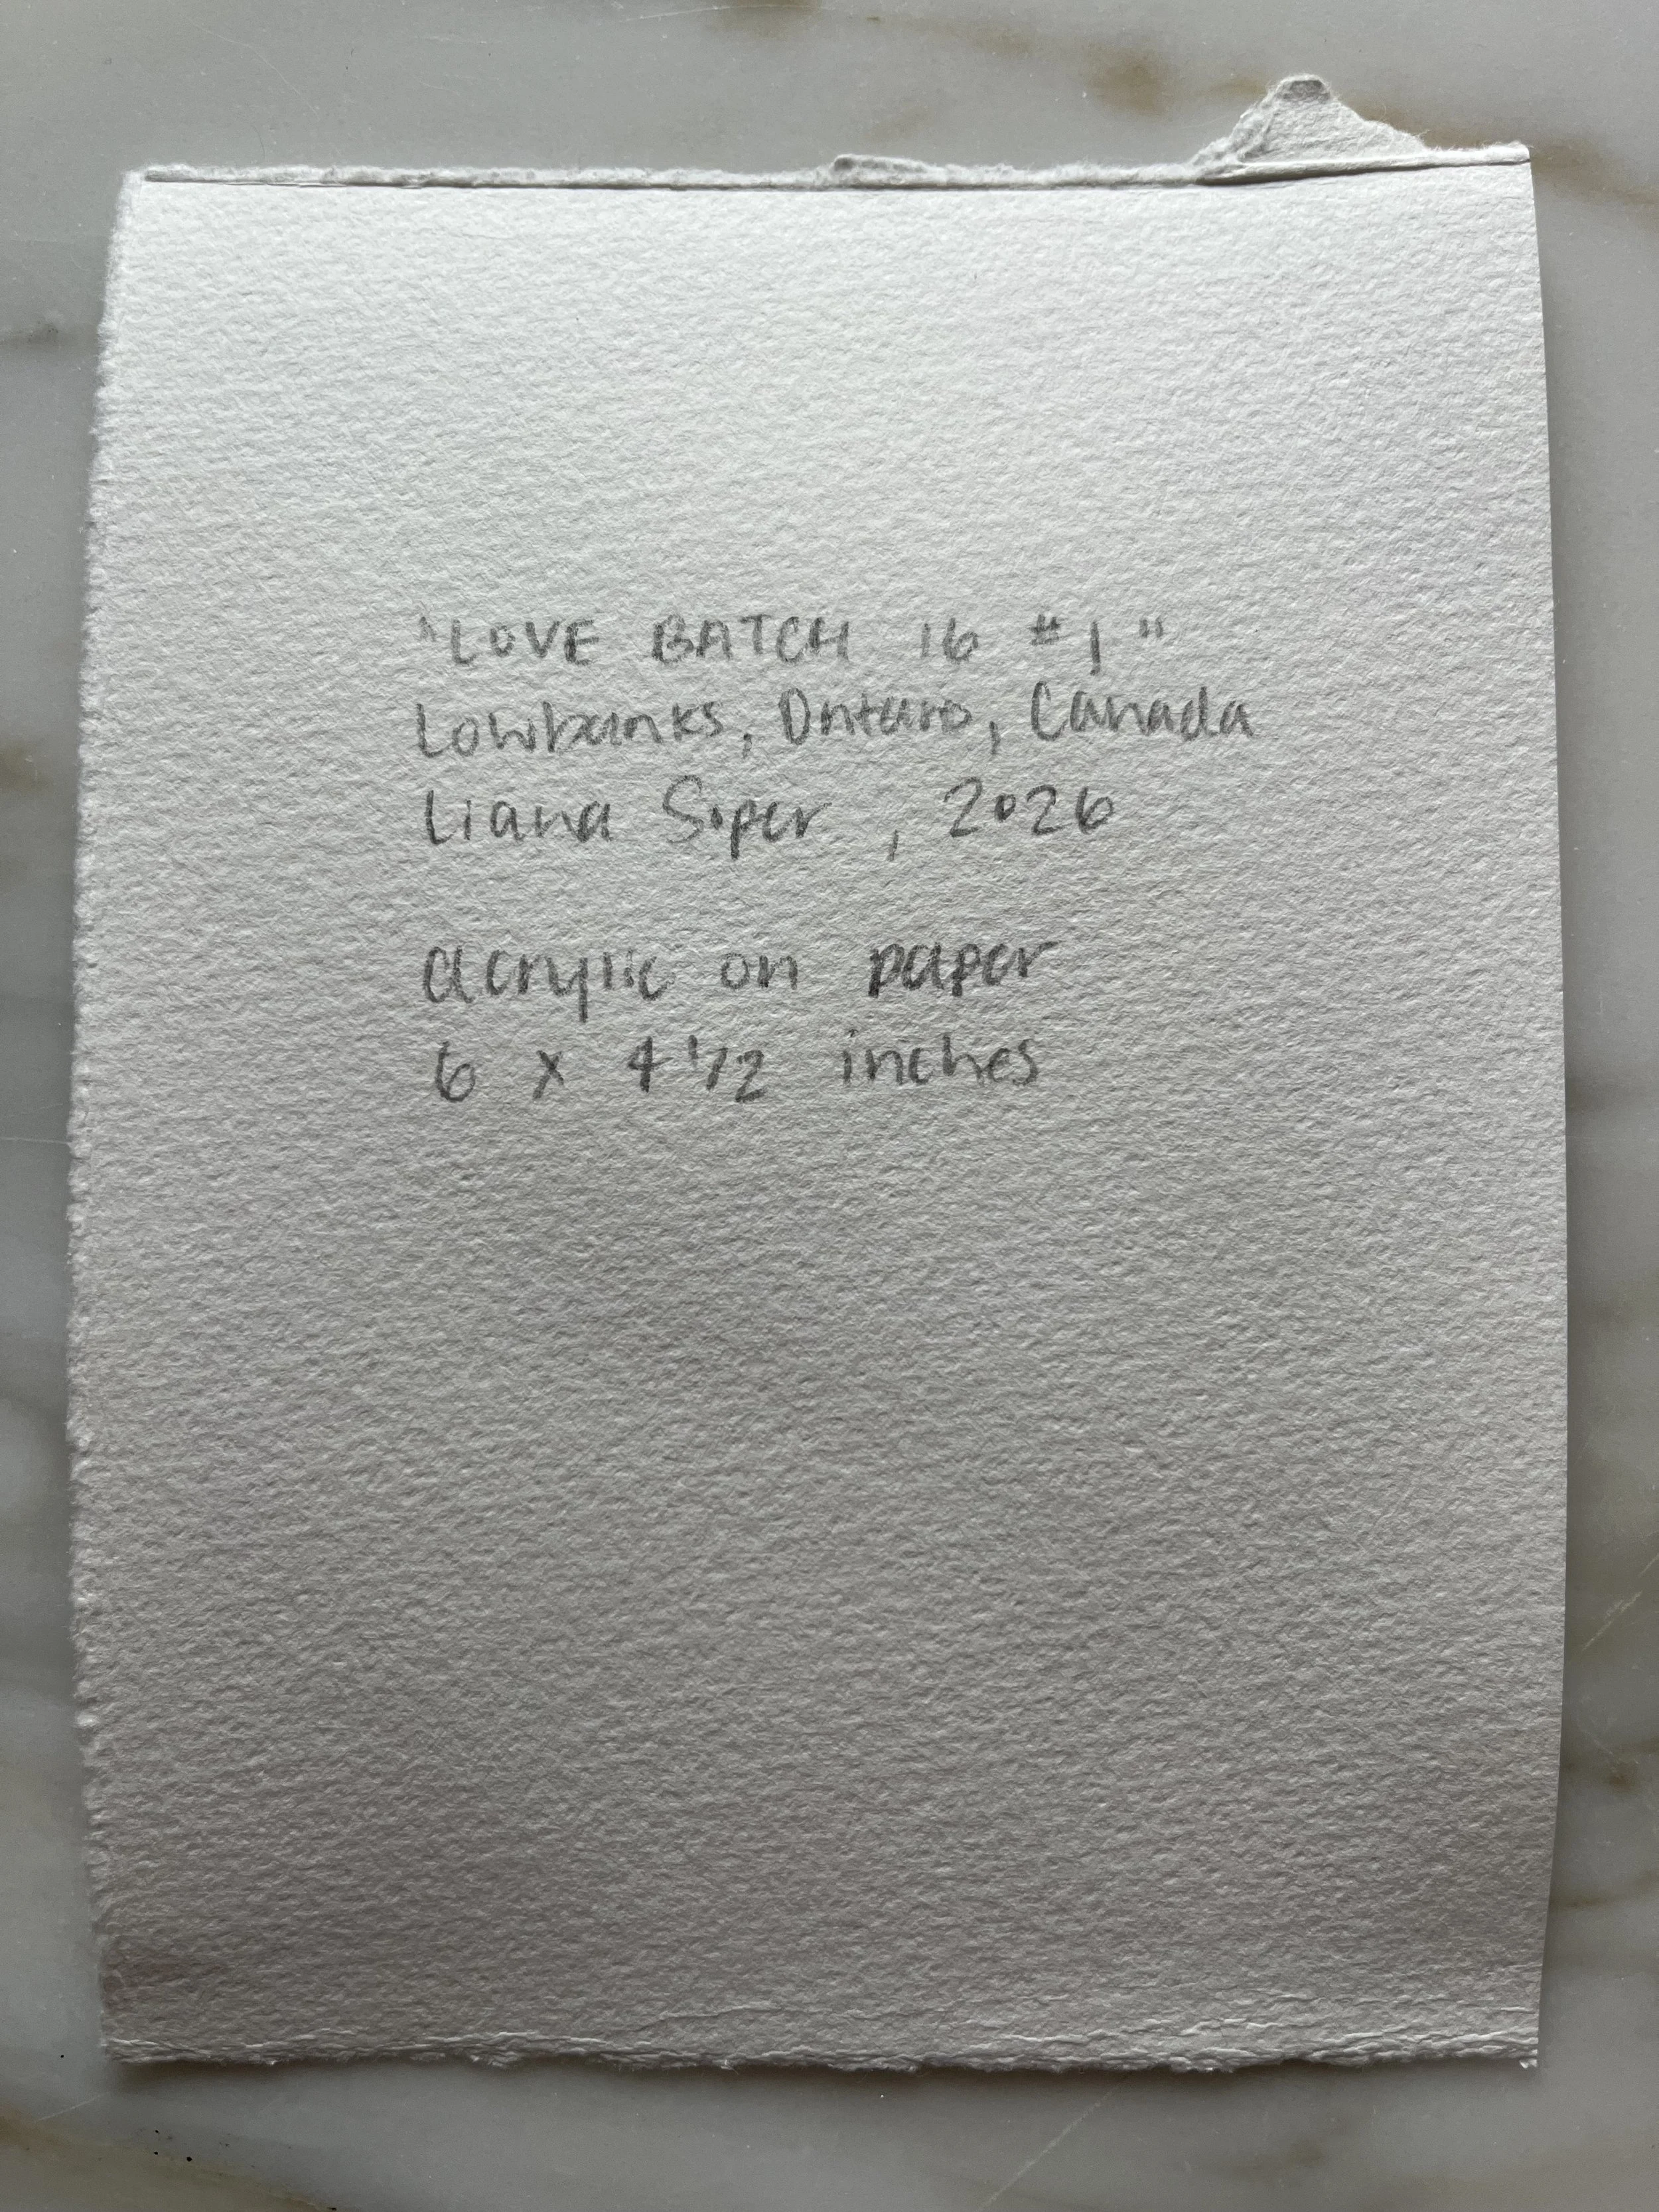 "LOVE BATCH 16 #1"
Lowbanks, Ontario, Canada
Liana Soper, 2026
acrylic on paper
6 x 4 1/2 inches